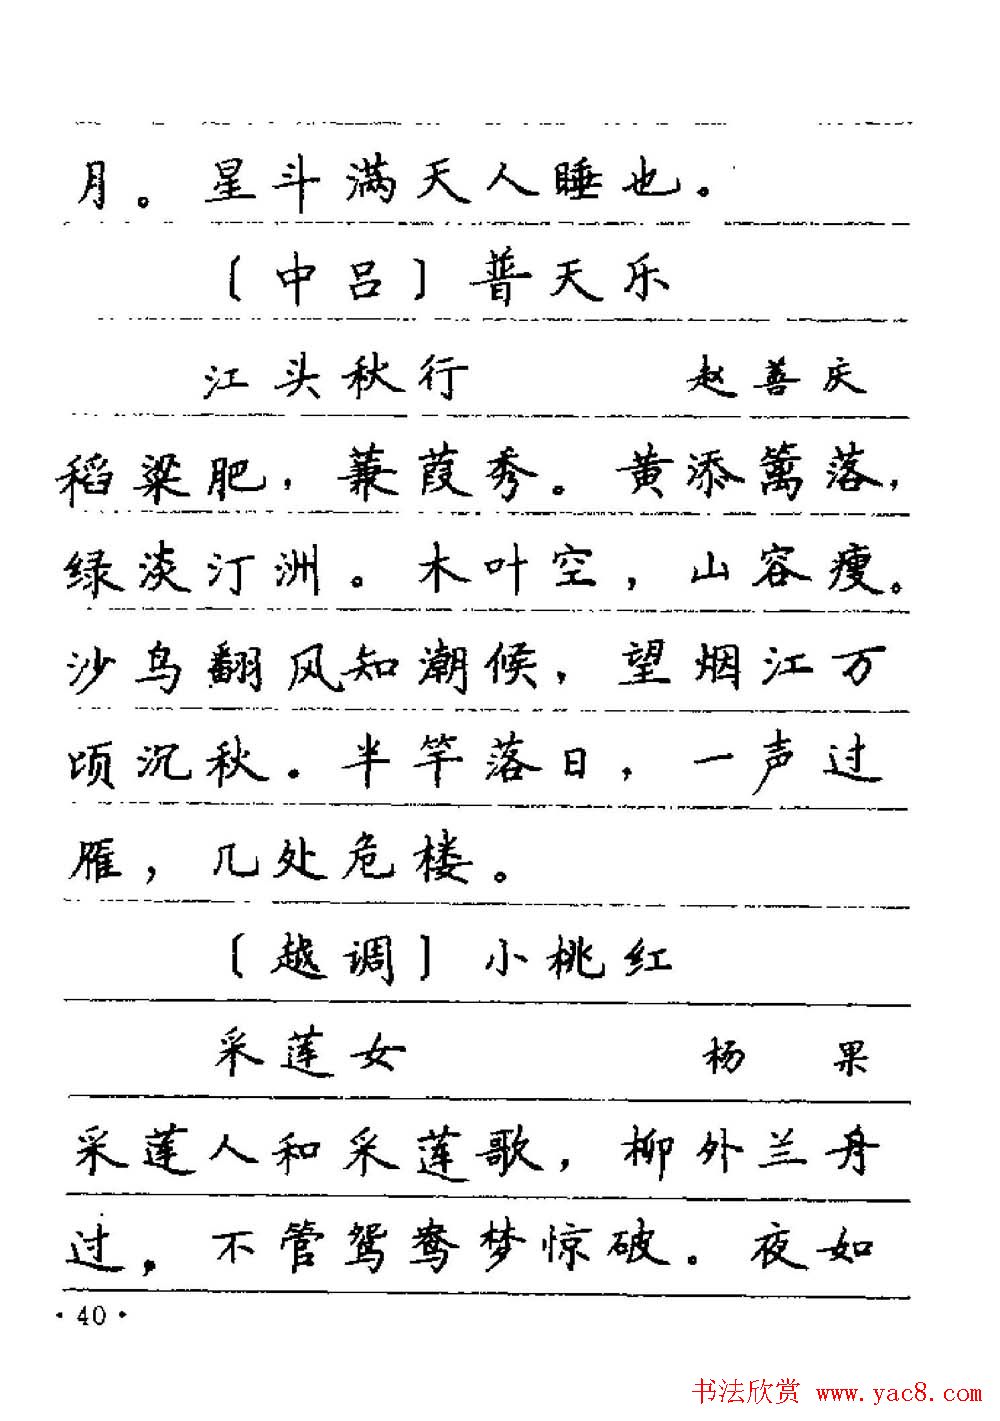 月。星斗满天人睡也。
〔中吕〕普天乐
江头秋行 赵善庆
稻粱肥，蒹葭秀。黄添篱落，
绿淡汀洲。木叶空，山容瘦。
沙鸟翻风知潮候，望烟江万
顷沉秋。半竿落日，一声过
雁，几处危楼。
〔越调〕小桃红
采莲女 杨 果
采莲人和采莲歌，柳外兰舟
过，不管鸳鸯梦惊破。夜如
·40·
书法欣赏 www.yac8.com